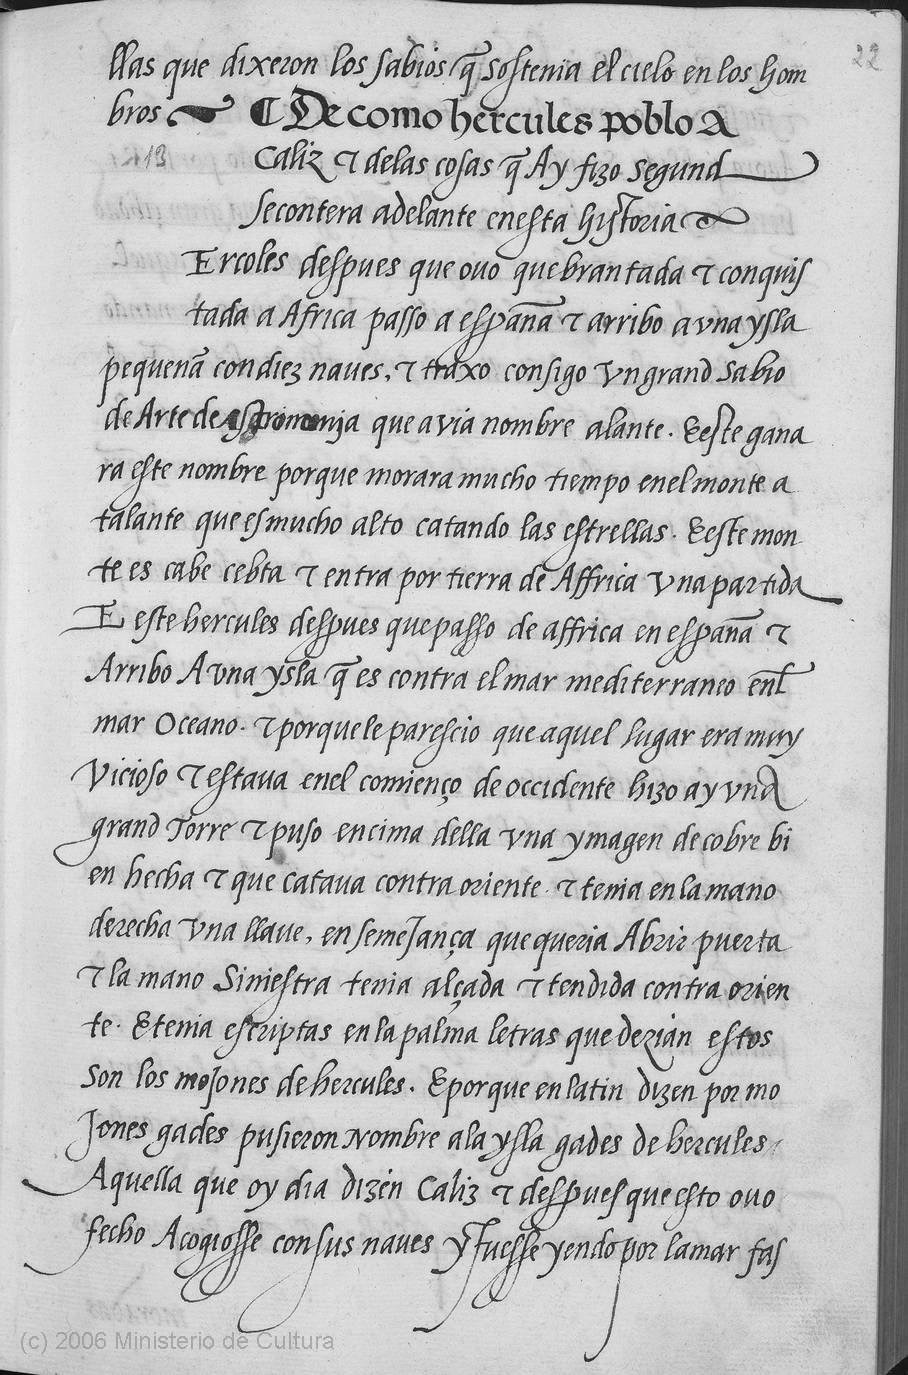 22
llas que dixeron los sabios q̃ sostenia el cielo en los hom
bros ¶ De como hercules poblo A
13 Caliz ⁊ delas cosas q̃ Ay fizo segund
se contera adelante enesta historia
Ercoles despues que ovo quebrantada ⁊ conquis
tada a Africa passo a españa ⁊ arribo a vna ysla
pequenã con diez naves, ⁊ traxo consigo vn grand sabio
de Arte de astronomja que avia nombre alante. E este gana
ra este nombre porque morara mucho tiempo enel monte a
talante que es mucho alto catando las estrellas. E este mon
te es cabe cebta ⁊ entra por tierra de Affrica vna partida
E este hercules despues que passo de affrica en españa ⁊
Arribo A vna ysla q̃ es contra el mar mediterraneo enl
mar Oceano. ⁊ porque le parescio que aquel lugar era muy
vicioso ⁊ estava enel comienço de occidente hizo ay vna
grand Torre ⁊ puso encima della vna ymagen de cobre bi
en hecha ⁊ que catava contra oriente. ⁊ tenia en la mano
derecha vna llave, en semejança que queria Abrir puerta
⁊ la mano Siniestra tenia alçada ⁊ tendida contra orien
te. E tenia escriptas en la palma letras que dezian estos
son los mojones de hercules. E porque en latin dizen por mo
jones gades pusieron nombre ala ysla gades de hercules
Aquella que oy dia dizen Caliz ⁊ despues que esto ovo
fecho Acogiosse con sus naves y fuesse yendo por la mar fas
(c) 2006 Ministerio de Cultura